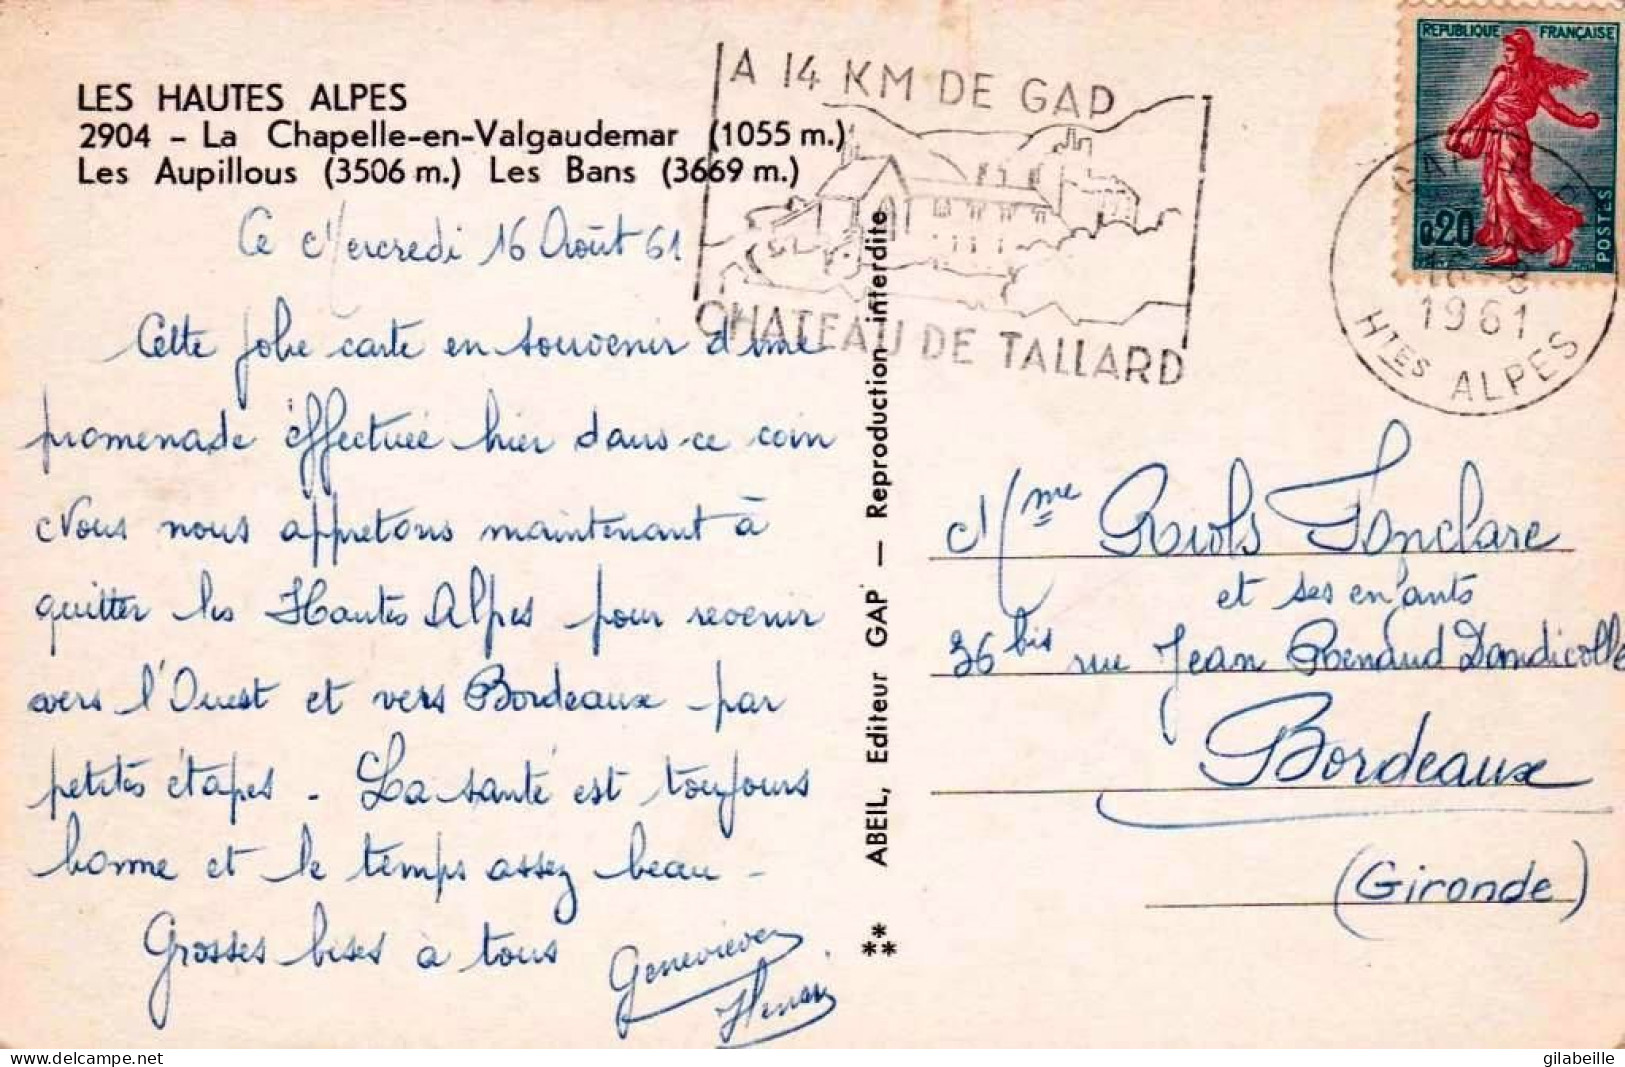 LES HAUTES ALPES
2904 - La Chapelle-en-Valgaudemar (1055 m.)
Les Aupillous (3506 m.) Les Bans (3669 m.)
Ce Mercredi 16 Août 61
Cette jolie carte en souvenir d'une
promenade éffectuée hier dans ce coin
Nous nous appretons maintenant à
quitter les Hautes Alpes pour revenir
vers l'Ouest et vers Bordeaux par
petites étapes - La santé est toujours
bonne et le temps assez beau -
Grosses bises à tous
Geneviève
Henri
A 14 KM DE GAP
CHATEAU DE TALLARD
ABEIL, Editeur GAP — Reproduction interdite
REPUBLIQUE FRANÇAISE
0,20
POSTES
GAP
16 - 8
1961
HTES ALPES
Mme Riols Fonclare
et ses enfants
36 bis rue Jean Renaud Dandicolle
Bordeaux
(Gironde)
gilabeille